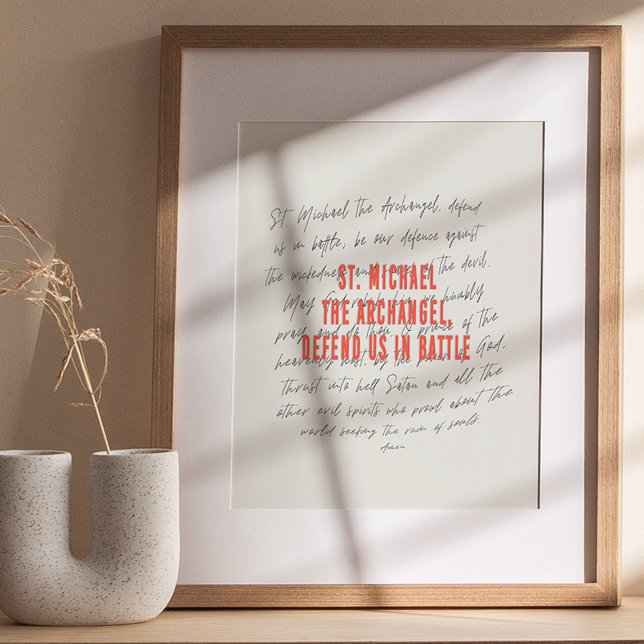 St. Michael the Archangel, defend
us in battle; be our defence against
the wickedness and snares of the devil.
ST. MICHAEL
May God rebuke him, we humbly
THE ARCHANGEL,
pray, and do thou, O prince of the
DEFEND US IN BATTLE
heavenly host, by the power of God,
thrust into hell Satan and all the
other evil spirits who prowl about the
world seeking the ruin of souls
Amen.